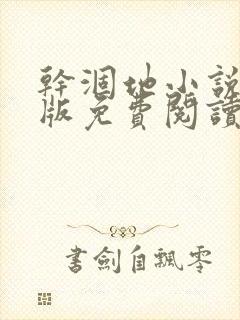 幹涸地小說
版免費閱讀
書劍自飄零